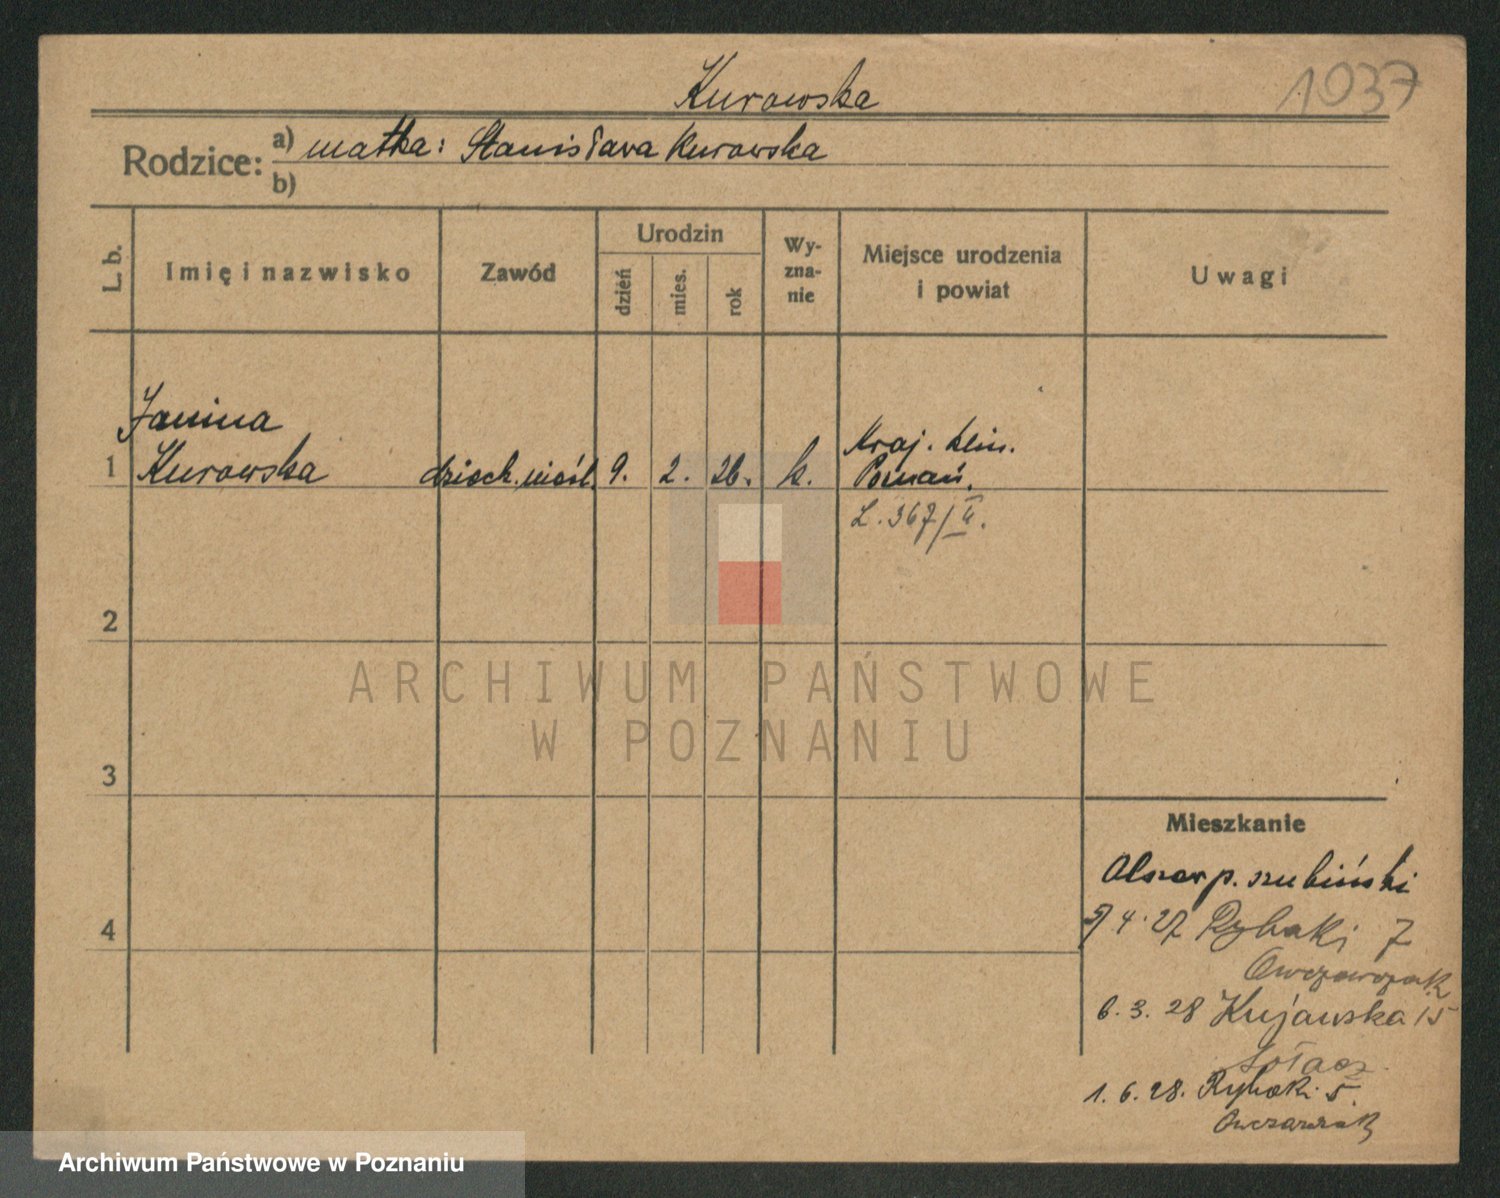 Kurowska
1037
Rodzice: a) matka: Stanisława Kurowska
b)
L. b.
Imię i nazwisko
Zawód
Urodzin
dzień
mies.
rok
Wy-
zna-
nie
Miejsce urodzenia
i powiat
Uwagi
Janina
Kurowska
1
dzieck. nieśl.
9.
2.
26.
k.
Kraj. klin.
Poznań.
L. 367/II.
2
3
4
Mieszkanie
p. szubiński
4.27 Rybaki 7
Owczarzak
6.3.28 Kujawska 15
Sołacz
1.6.28. Rybaki 5.
Owczarzak
ARCHIWUM PAŃSTWOWE
W POZNANIU
Archiwum Państwowe w Poznaniu